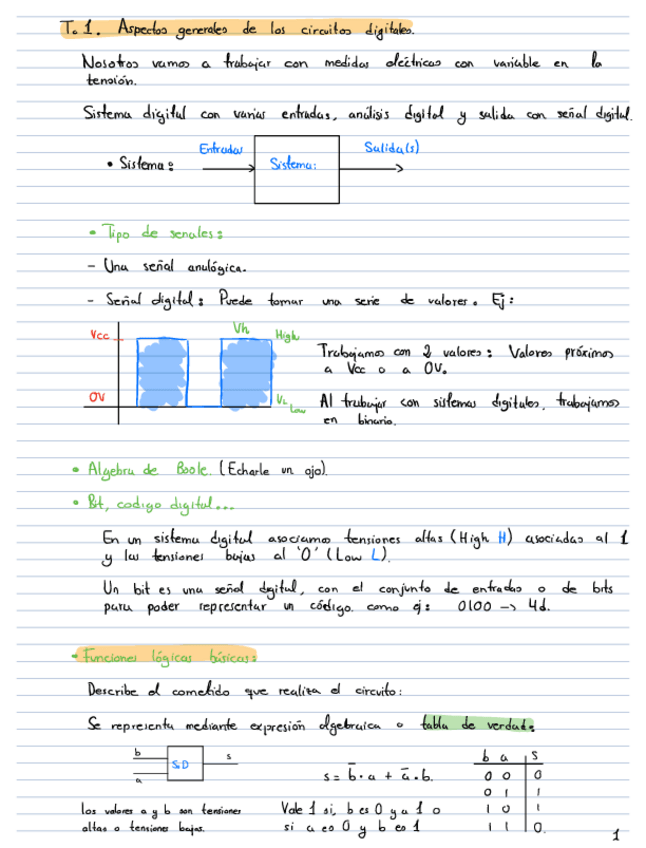 T. 1. Aspectos generales de los circuitos digitales.
Nosotros vamos a trabajar con medidas eléctricas con variable en la
tensión.
Sistema digital con varias entradas, análisis digital y salida con señal digital.
• Sistema: Entradas Sistema: Salida(s)
• Tipo de senales:
- Una señal analógica.
- Señal digital: Puede tomar una serie de valores. Ej:
Vcc Vh High
Trabajamos con 2 valores: Valores próximos
a Vcc o a 0V.
0V VL Low
Al trabajar con sistemas digitales, trabajamos
en binario.
• Algebra de Boole. (Echarle un ojo).
• Bit, codigo digital...
En un sistema digital asociamos tensiones altas (High H) asociadas al 1
y las tensiones bajas al '0' (Low L).
Un bit es una señal digital, con el conjunto de entradas o de bits
para poder representar un código. como ej: 0100 -> 4d.
• Funciones lógicas básicas:
Describe el cometido que realiza el circuito:
Se representa mediante expresión algebraica o tabla de verdad:
b a S.D s
s = b̅ · a + a̅ · b.
b a s
0 0 0
0 1 1
1 0 1
1 1 0
los valores a y b son tensiones
altas o tensiones bajas.
Vale 1 si, b es 0 y a 1 o
si a es 0 y b es 1
1